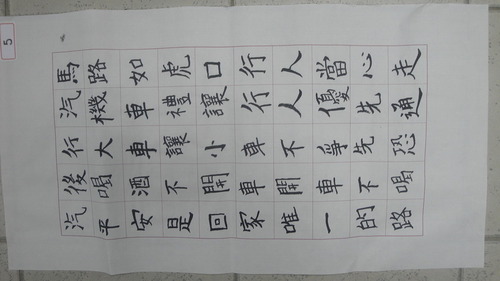 5
馬路如虎口行人當心走
汽機車禮讓行人優先通
行大車讓小車不爭先恐
後喝酒不開車開車不喝
汽平安是回家唯一的路